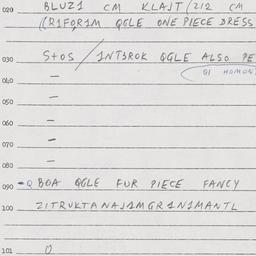 020 BLUZ1 CM KLAJT (212 CM
(R1FOR1M QGLE ONE PIECE DRESS
030 S+OS / 1NT3ROK QGLE ALSO PE
040 — QI HOMON
050 —
060 —
070 —
080 —
090 -Q BOA QGLE FUR PIECE FANCY
100 ZITRUKTANAJ1MGR1N1MANTL
101 0